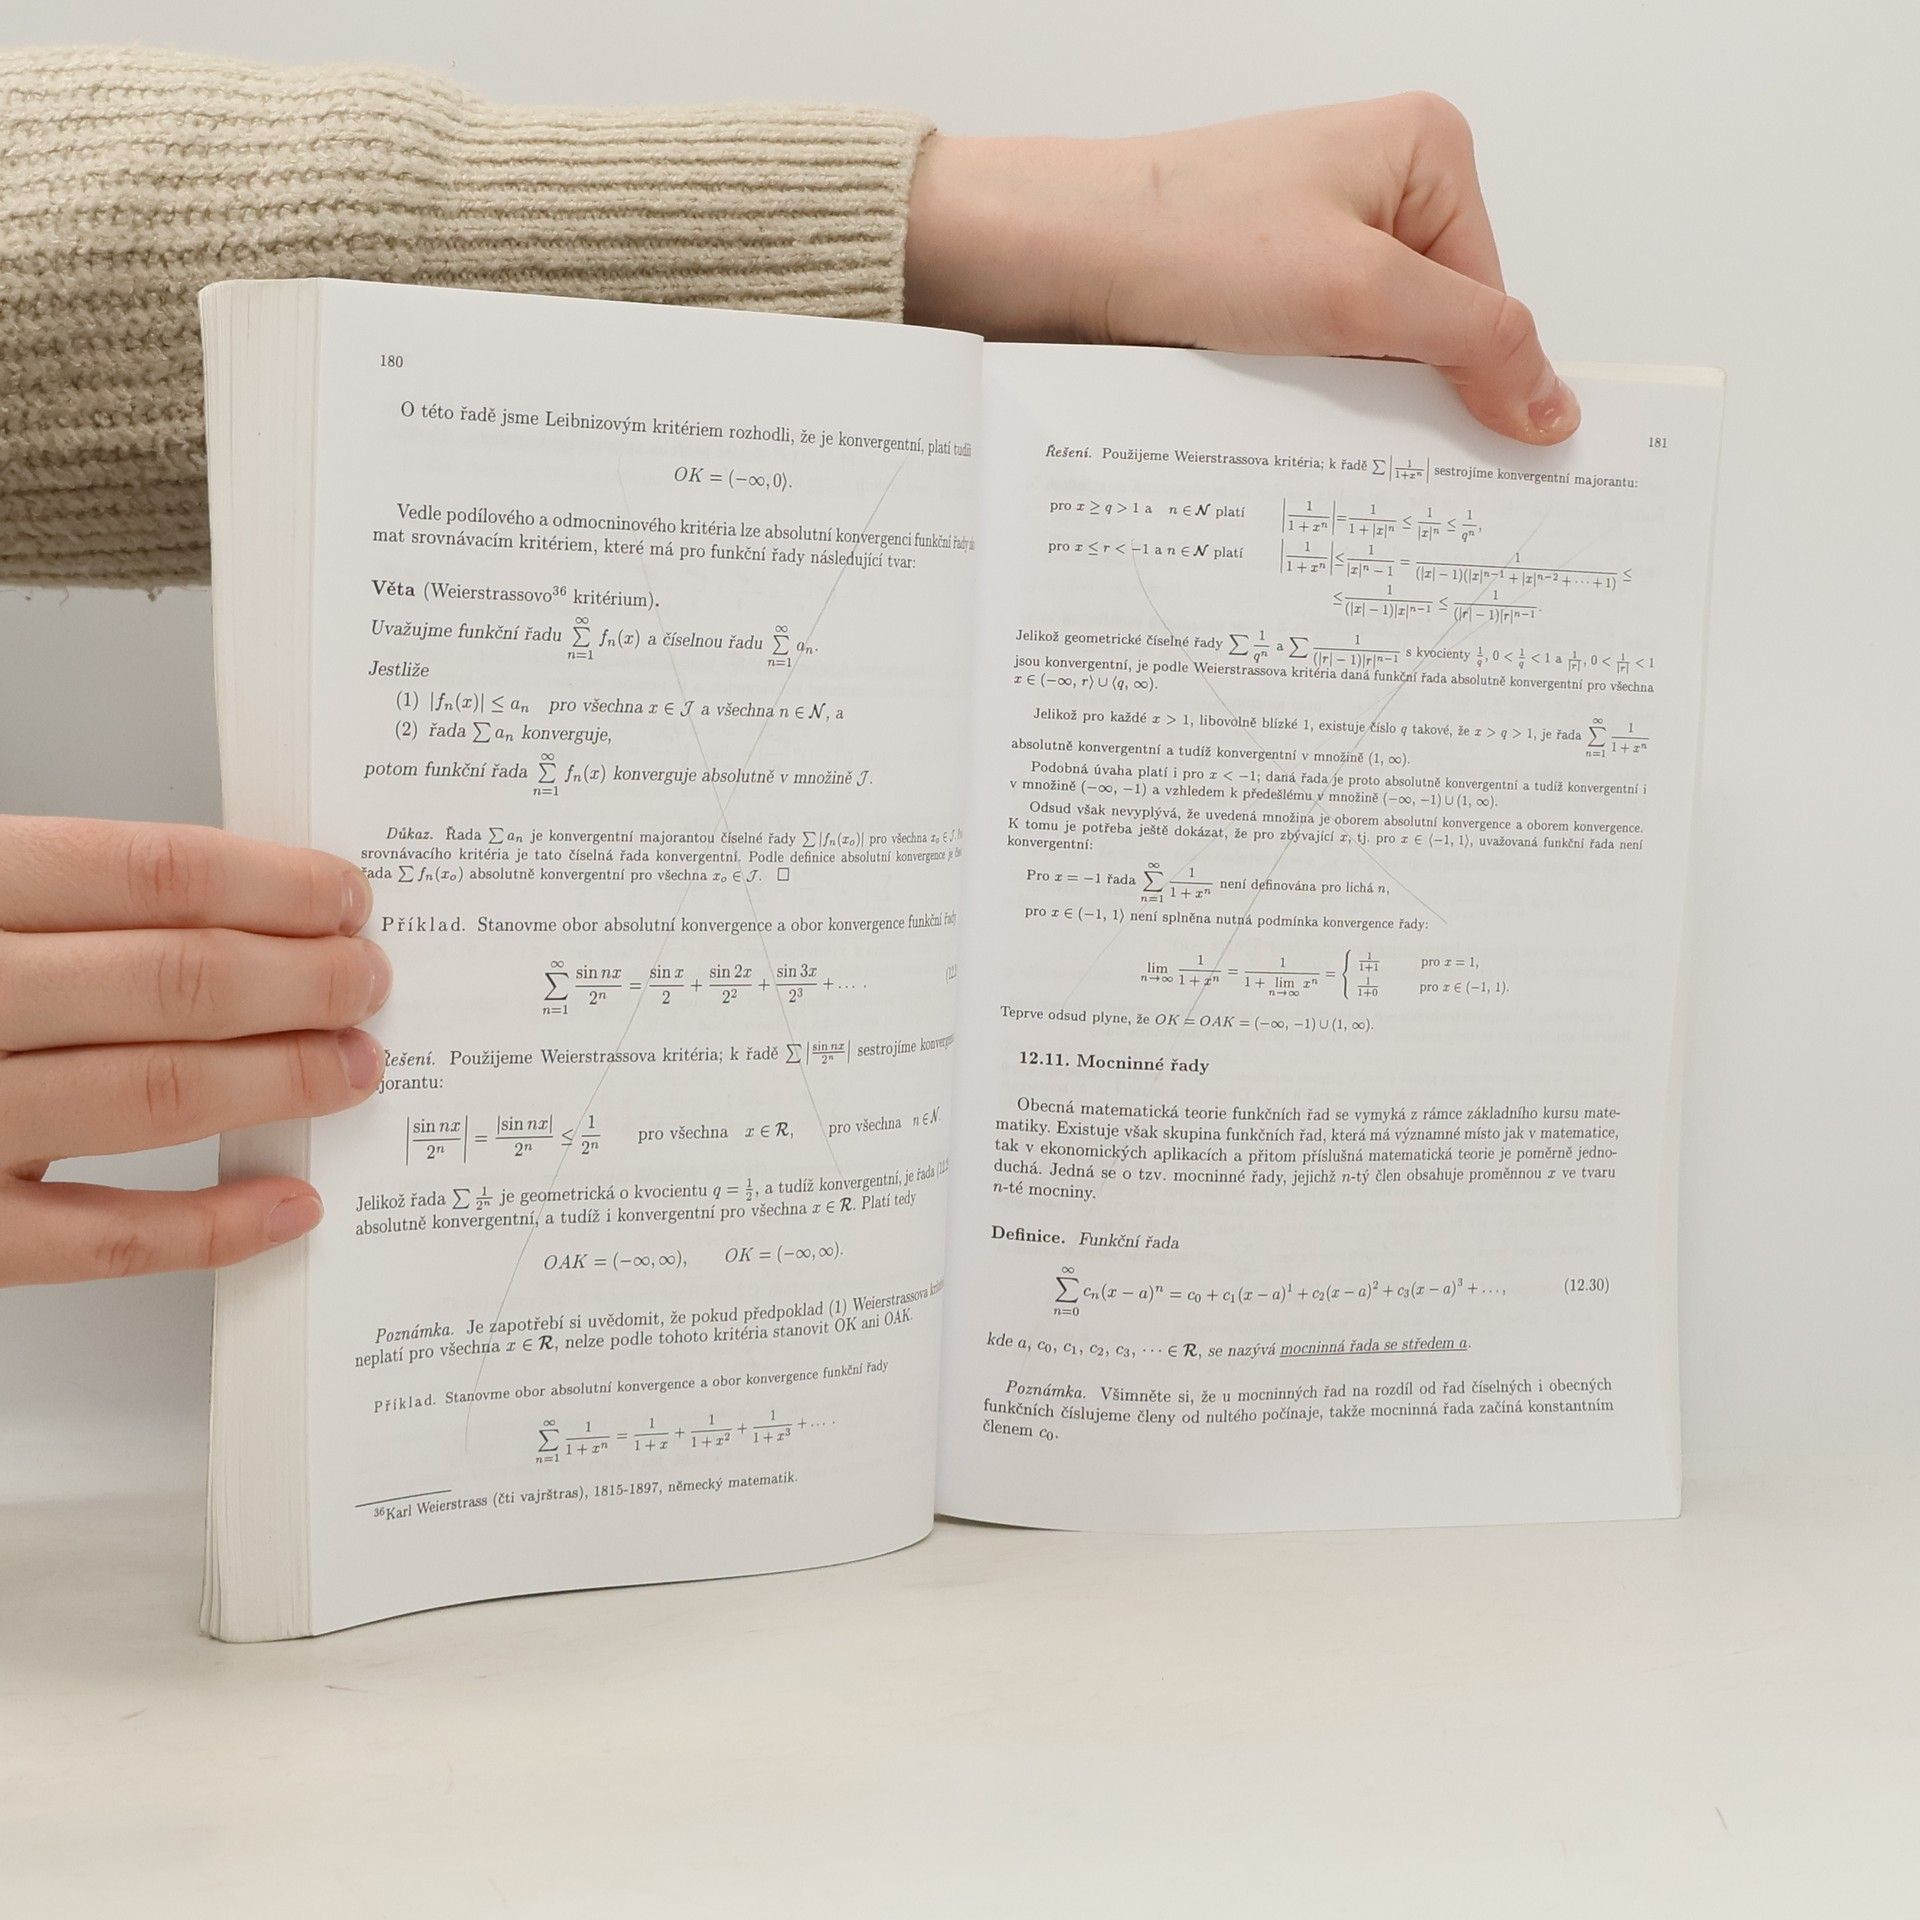 180
O této řadě jsme Leibnizovým kritériem rozhodli, že je konvergentní, platí tudíž
OK = (−∞, 0⟩.
Vedle podílového a odmocninového kritéria lze absolutní konvergenci funkční řady
mat srovnávacím kritériem, které má pro funkční řady následující tvar:
Věta (Weierstrassovo³⁶ kritérium).
Uvažujme funkční řadu ∑_{n=1}^{∞} fₙ(x) a číselnou řadu ∑_{n=1}^{∞} aₙ.
Jestliže
(1) |fₙ(x)| ≤ aₙ pro všechna x ∈ 𝒥 a všechna n ∈ 𝒩, a
(2) řada ∑ aₙ konverguje,
potom funkční řada ∑_{n=1}^{∞} fₙ(x) konverguje absolutně v množině 𝒥.
Důkaz. Řada ∑ aₙ je konvergentní majorantou číselné řady ∑|fₙ(xₒ)| pro všechna xₒ ∈ 𝒥.
srovnávacího kritéria je tato číselná řada konvergentní. Podle definice absolutní konvergence je
řada ∑ fₙ(xₒ) absolutně konvergentní pro všechna xₒ ∈ 𝒥. □
Příklad. Stanovme obor absolutní konvergence a obor konvergence funkční řady
∑_{n=1}^{∞} sin nx / 2ⁿ = sin x / 2 + sin 2x / 2² + sin 3x / 2³ + ... .
Řešení. Použijeme Weierstrassova kritéria; k řadě ∑ |sin nx / 2ⁿ| sestrojíme
jorantu:
|sin nx / 2ⁿ| = |sin nx| / 2ⁿ ≤ 1/2ⁿ pro všechna x ∈ ℛ, pro všechna n ∈ 𝒩.
Jelikož řada ∑ 1/2ⁿ je geometrická o kvocientu q = 1/2, a tudíž konvergentní, je řada
absolutně konvergentní, a tudíž i konvergentní pro všechna x ∈ ℛ. Platí tedy
OAK = (−∞, ∞), OK = (−∞, ∞).
Poznámka. Je zapotřebí si uvědomit, že pokud předpoklad (1) Weierstrassova
neplatí pro všechna x ∈ ℛ, nelze podle tohoto kritéria stanovit OK ani OAK.
Příklad. Stanovme obor absolutní konvergence a obor konvergence funkční řady
∑_{n=1}^{∞} 1/(1 + xⁿ) = 1/(1 + x) + 1/(1 + x²) + 1/(1 + x³) + ... .
³⁶Karl Weierstrass (čti vajrštras), 1815-1897, německý matematik.
181
Řešení. Použijeme Weierstrassova kritéria; k řadě ∑ |1/(1+xⁿ)| sestrojíme konvergentní majorantu:
pro x ≥ q > 1 a n ∈ 𝒩 platí |1/(1 + xⁿ)| = 1/(1 + |x|ⁿ) ≤ 1/|x|ⁿ ≤ 1/qⁿ,
pro x ≤ r < −1 a n ∈ 𝒩 platí |1/(1 + xⁿ)| ≤ 1/(|x|ⁿ − 1) = 1/((|x| − 1)(|x|ⁿ⁻¹ + |x|ⁿ⁻² + ··· + 1)) ≤
≤ 1/((|x| − 1)|x|ⁿ⁻¹) ≤ 1/((|r| − 1)|r|ⁿ⁻¹).
Jelikož geometrické číselné řady ∑ 1/qⁿ a ∑ 1/((|r| − 1)|r|ⁿ⁻¹) s kvocienty 1/q, 0 < 1/q < 1 a 1/|r|, 0 < 1/|r| < 1
jsou konvergentní, je podle Weierstrassova kritéria daná funkční řada absolutně konvergentní pro všechna
x ∈ (−∞, r⟩ ∪ ⟨q, ∞).
Jelikož pro každé x > 1, libovolně blízké 1, existuje číslo q takové, že x > q > 1, je řada ∑_{n=1}^{∞} 1/(1 + xⁿ)
absolutně konvergentní a tudíž konvergentní v množině (1, ∞).
Podobná úvaha platí i pro x < −1; daná řada je proto absolutně konvergentní a tudíž konvergentní i
v množině (−∞, −1) a vzhledem k předešlému v množině (−∞, −1) ∪ (1, ∞).
Odsud však nevyplývá, že uvedená množina je oborem absolutní konvergence a oborem konvergence.
K tomu je potřeba ještě dokázat, že pro zbývající x, tj. pro x ∈ ⟨−1, 1⟩, uvažovaná funkční řada není
konvergentní:
Pro x = −1 řada ∑_{n=1}^{∞} 1/(1 + xⁿ) není definována pro lichá n,
pro x ∈ (−1, 1⟩ není splněna nutná podmínka konvergence řady:
lim_{n→∞} 1/(1 + xⁿ) = 1/(1 + lim_{n→∞} xⁿ) = { 1/(1+1) pro x = 1,
1/(1+0) pro x ∈ (−1, 1).
Teprve odsud plyne, že OK = OAK = (−∞, −1) ∪ (1, ∞).
12.11. Mocninné řady
Obecná matematická teorie funkčních řad se vymyká z rámce základního kursu mate-
matiky. Existuje však skupina funkčních řad, která má významné místo jak v matematice,
tak v ekonomických aplikacích a přitom příslušná matematická teorie je poměrně jedno-
duchá. Jedná se o tzv. mocninné řady, jejichž n-tý člen obsahuje proměnnou x ve tvaru
n-té mocniny.
Definice. Funkční řada
∑_{n=0}^{∞} cₙ(x − a)ⁿ = c₀ + c₁(x − a)¹ + c₂(x − a)² + c₃(x − a)³ + ..., (12.30)
kde a, c₀, c₁, c₂, c₃, ··· ∈ ℛ, se nazývá mocninná řada se středem a.
Poznámka. Všimněte si, že u mocninných řad na rozdíl od řad číselných i obecných
funkčních číslujeme členy od nultého počínaje, takže mocninná řada začíná konstantním
členem c₀.